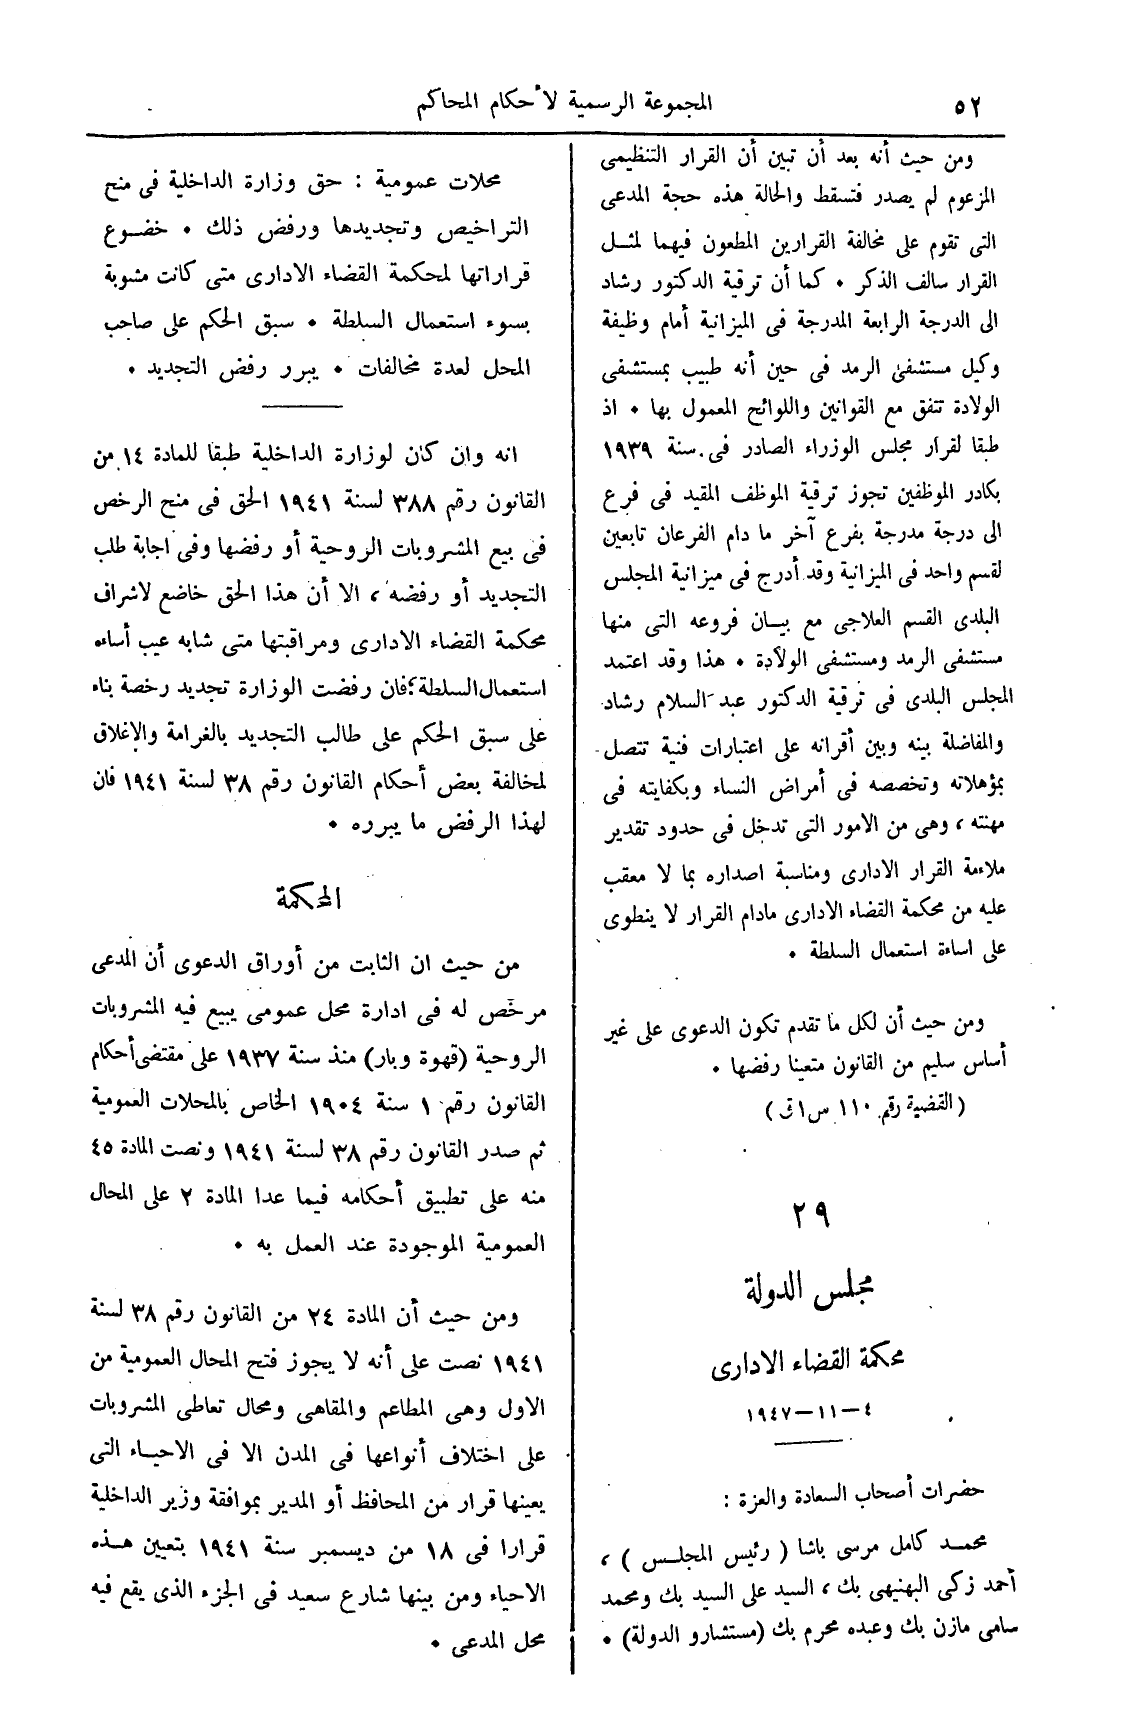 ٥٢
المجموعة الرسمية لأحكام المحاكم
ومن حيث أنه بعد أن تبين أن القرار التنظيمى
المزعوم لم يصدر فتسقط والحالة هذه حجة المدعى
التى تقوم على مخالفة القرارين المطعون فيهما لمثل
القرار سالف الذكر . كما أن ترقية الدكتور رشاد
الى الدرجة الرابعة المدرجة فى الميزانية أمام وظيفة
وكيل مستشفى الرمد فى حين أنه طبيب بمستشفى
الولادة تتفق مع القوانين واللوائح المعمول بها . اذ
طبقا لقرار مجلس الوزراء الصادر فى سنة ١٩٣٩
بكادر الموظفين تجوز ترقية الموظف المقيد فى فرع
الى درجة مدرجة بفرع آخر ما دام الفرعان تابعين
لقسم واحد فى الميزانية وقد أدرج فى ميزانية المجلس
البلدى القسم العلاجى مع بيان فروعه التى منها
مستشفى الرمد ومستشفى الولادة . هذا وقد اعتمد
المجلس البلدى فى ترقية الدكتور عبد السلام رشاد
والمفاضلة بينه وبين أقرانه على اعتبارات فنية تتصل
بمؤهلاته وتخصصه فى أمراض النساء وبكفايته فى
مهنته ، وهى من الامور التى تدخل فى حدود تقدير
ملاءمة القرار الادارى ومناسبة اصداره بما لا معقب
عليه من محكمة القضاء الادارى مادام القرار لا ينطوى
على اساءة استعمال السلطة .
ومن حيث أن لكل ما تقدم تكون الدعوى على غير
أساس سليم من القانون متعينا رفضها .
( القضية رقم ١١٠ س ١ ق )
٢٩
مجلس الدولة
محكمة القضاء الادارى
٤ – ١١ – ١٩٤٧
حضرات أصحاب السعادة والعزة :
محمد كامل مرسى باشا ( رئيس المجلس ) ،
أحمد زكى البهنيهى بك ، السيد على السيد بك ومحمد
سامى مازن بك وعبده محرم بك (مستشارو الدولة) .
محلات عمومية : حق وزارة الداخلية فى منح
التراخيص وتجديدها ورفض ذلك . خضوع
قراراتها لمحكمة القضاء الادارى متى كانت مشوبة
بسوء استعمال السلطة . سبق الحكم على صاحب
المحل لعدة مخالفات . يبرر رفض التجديد .
انه وان كان لوزارة الداخلية طبقا للمادة ١٤ من
القانون رقم ٣٨٨ لسنة ١٩٤١ الحق فى منح الرخص
فى بيع المشروبات الروحية أو رفضها وفى اجابة طلب
التجديد أو رفضه ، الا أن هذا الحق خاضع لاشراف
محكمة القضاء الادارى ومراقبتها متى شابه عيب أساءه
استعمال السلطة ؛ فان رفضت الوزارة تجديد رخصة بناء
على سبق الحكم على طالب التجديد بالغرامة والإغلاق
لمخالفة بعض أحكام القانون رقم ٣٨ لسنة ١٩٤١ فان
لهذا الرفض ما يبرره .
المحكمة
من حيث ان الثابت من أوراق الدعوى أن المدعى
مرخص له فى ادارة محل عمومى يبيع فيه المشروبات
الروحية (قهوة وبار) منذ سنة ١٩٣٧ على مقتضى أحكام
القانون رقم ١ سنة ١٩٠٤ الخاص بالمحلات العمومية
ثم صدر القانون رقم ٣٨ لسنة ١٩٤١ ونصت المادة ٤٥
منه على تطبيق أحكامه فيما عدا المادة ٢ على المحال
العمومية الموجودة عند العمل به .
ومن حيث أن المادة ٢٤ من القانون رقم ٣٨ لسنة
١٩٤١ نصت على أنه لا يجوز فتح المحال العمومية من
الاول وهى المطاعم والمقاهى ومحال تعاطى المشروبات
على اختلاف أنواعها فى المدن الا فى الاحياء التى
يعينها قرار من المحافظ أو المدير بموافقة وزير الداخلية
قرارا فى ١٨ من ديسمبر سنة ١٩٤١ بتعيين هذه
الاحياء ومن بينها شارع سعيد فى الجزء الذى يقع فيه
محل المدعى .